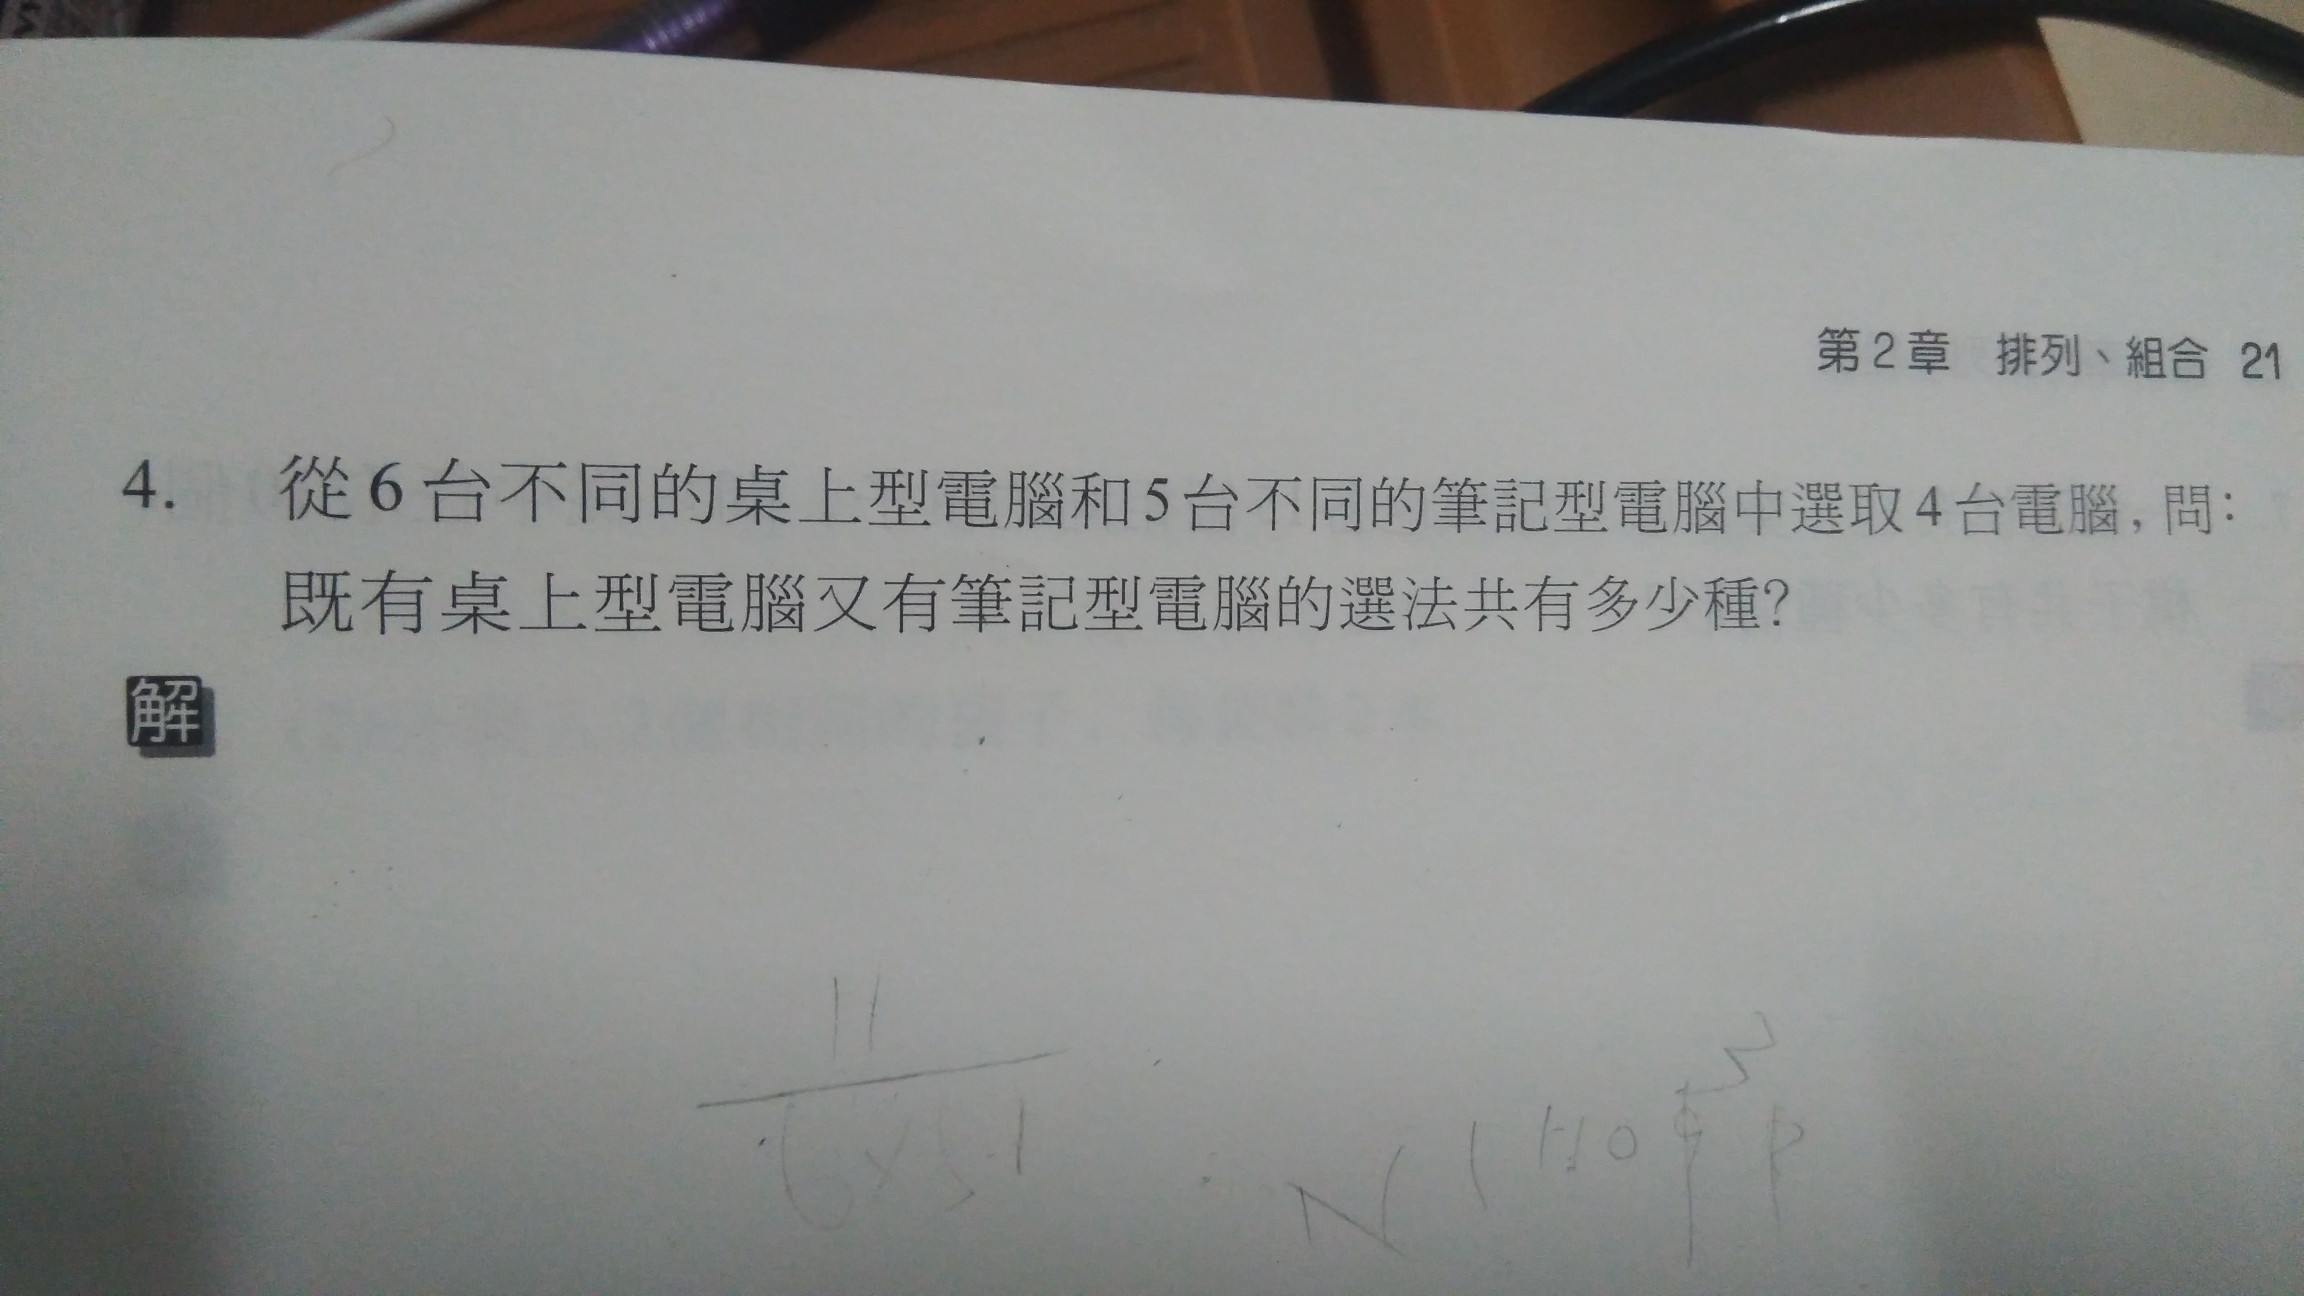 第2章 排列、組合 21
4. 從6台不同的桌上型電腦和5台不同的筆記型電腦中選取4台電腦,問:
既有桌上型電腦又有筆記型電腦的選法共有多少種?
解
11